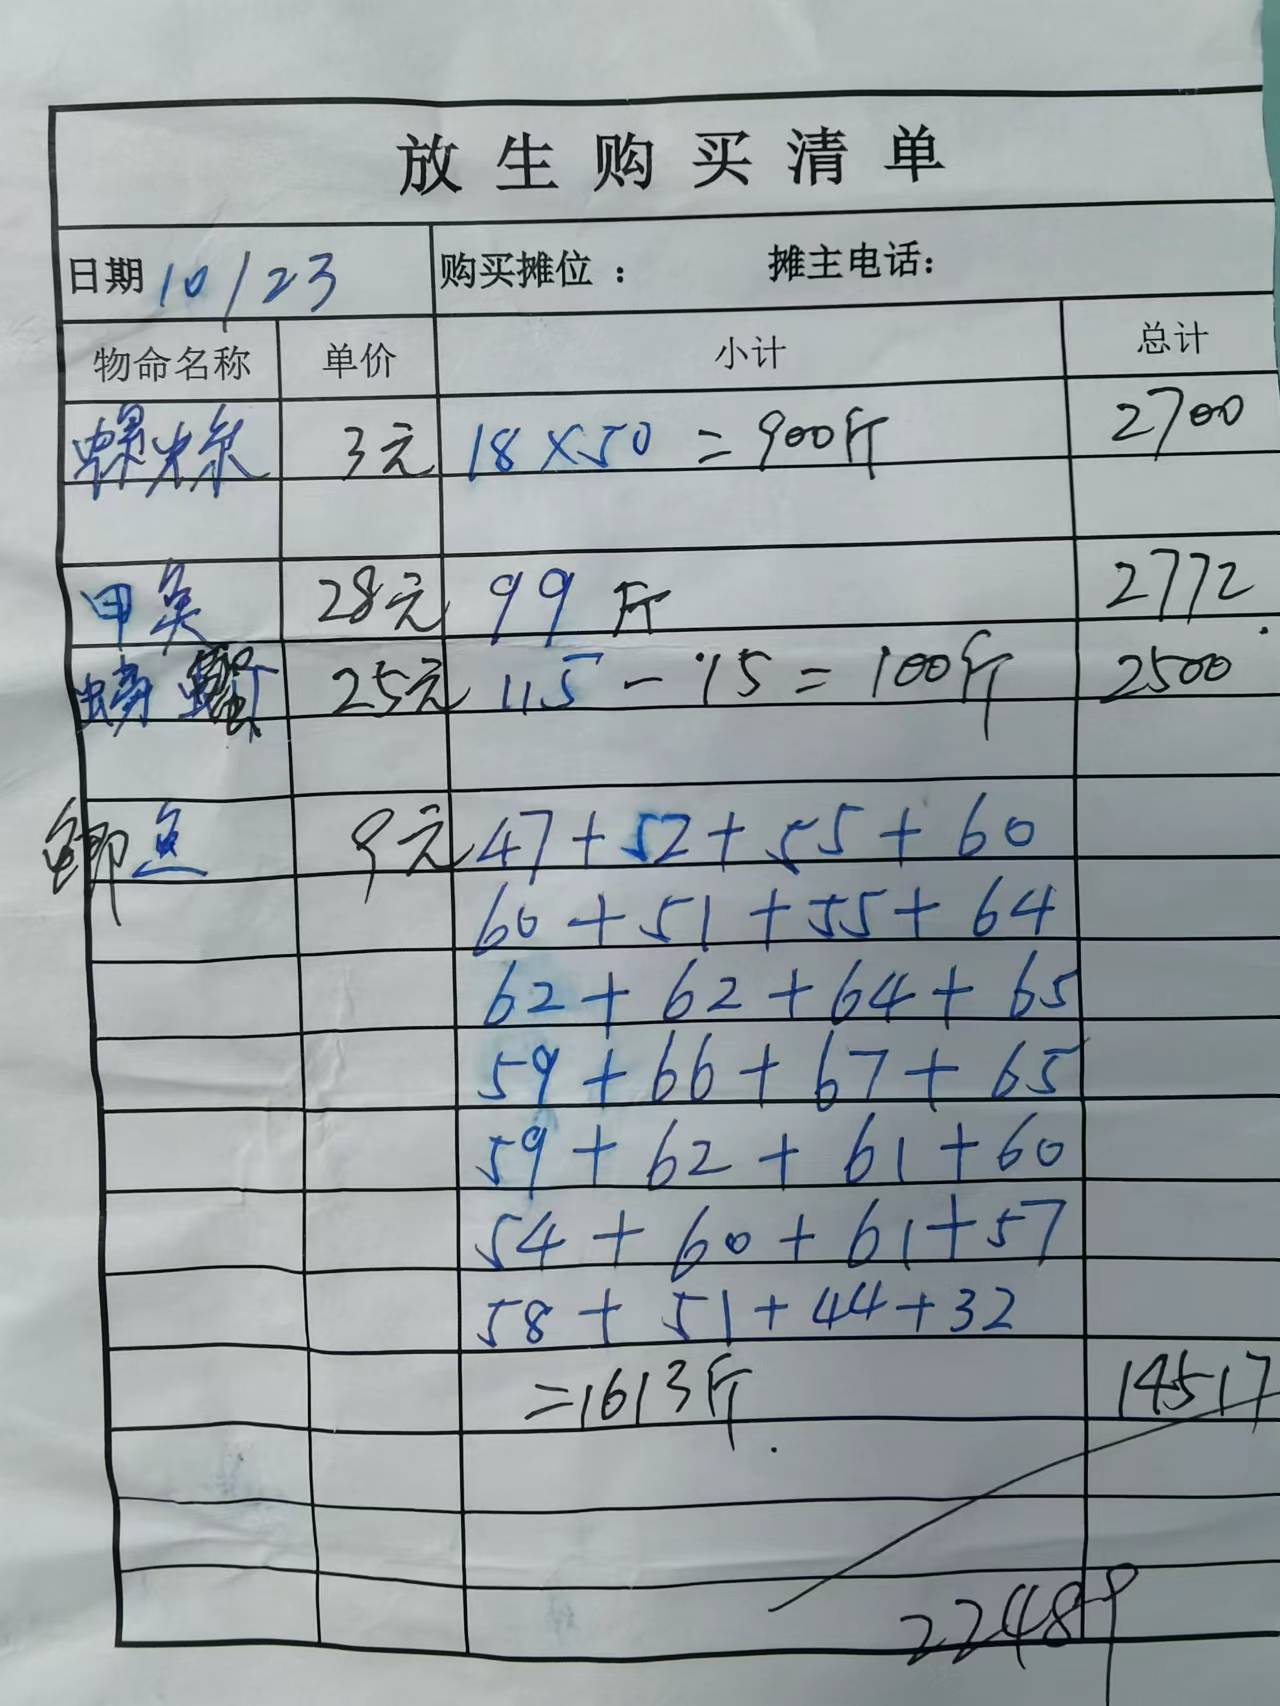 放生购买清单
日期 10/23 购买摊位： 摊主电话：
物命名称 单价 小计 总计
螺蛳 3元 18×50=900斤 2700
甲鱼 28元 99斤 2772
螃蟹 25元 115-15=100斤 2500
鲫鱼 9元 47+52+55+60
60+51+55+64
62+62+64+65
59+66+67+65
59+62+61+60
54+60+61+57
58+51+44+32
=1613斤 14517
22489